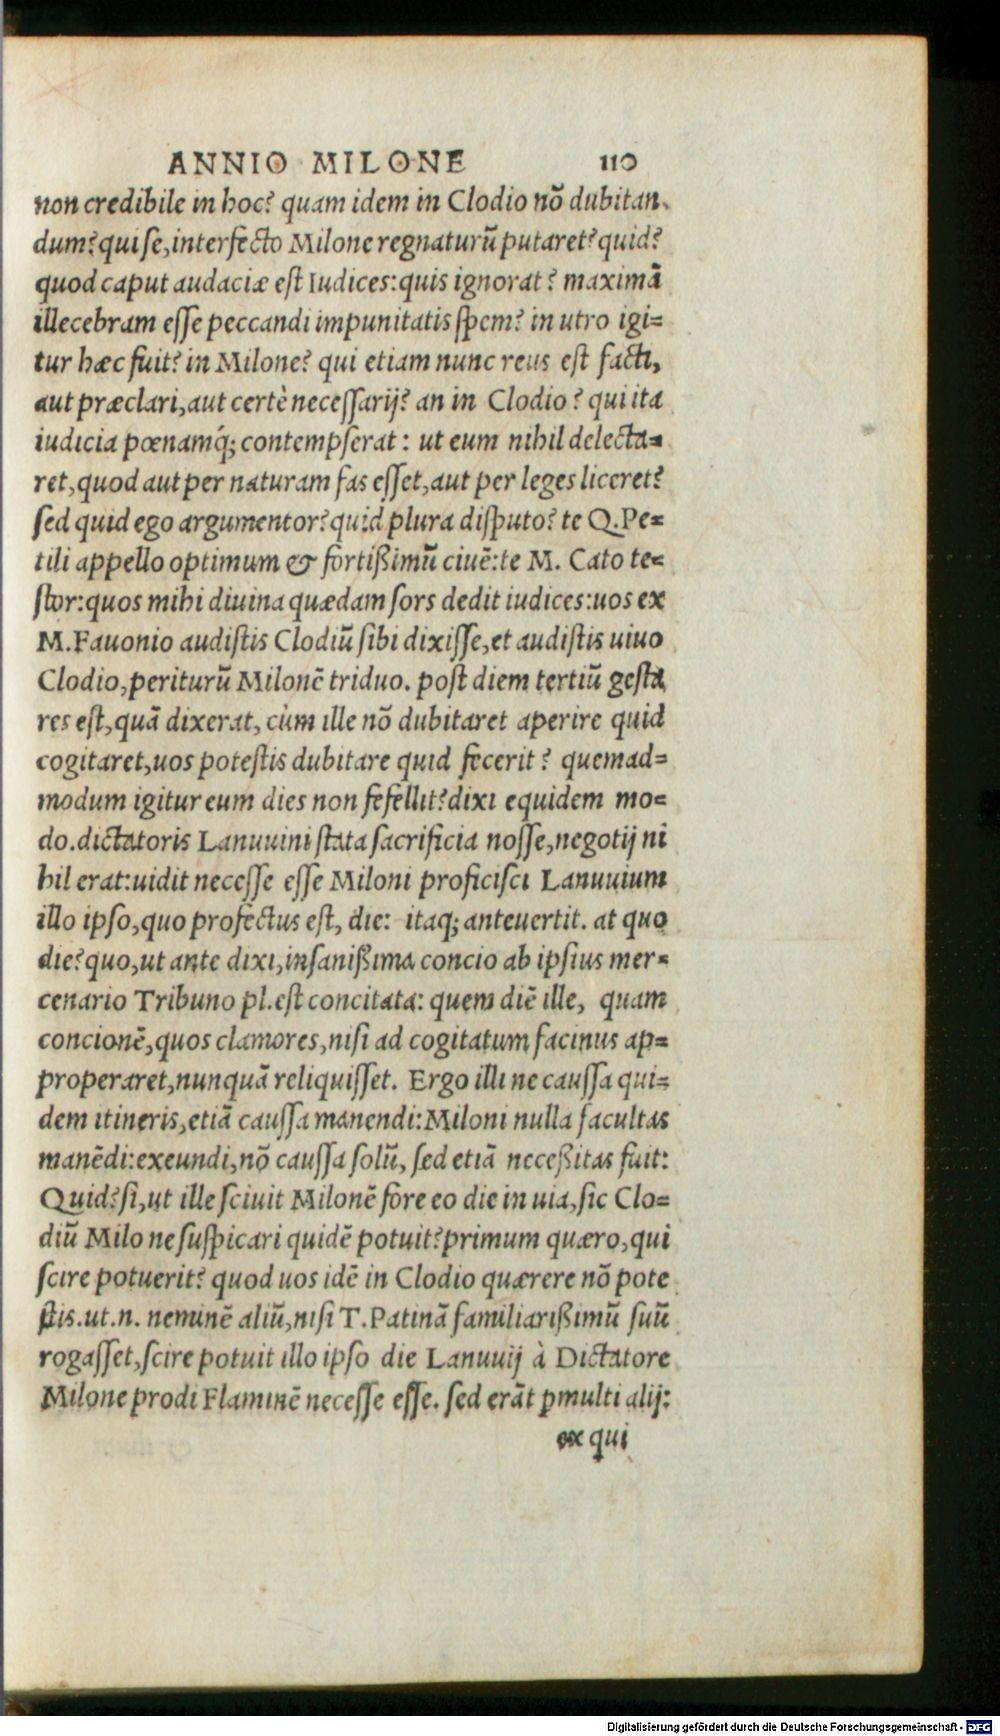 ANNIO MILONE 110
non credibile in hoc? quam idem in Clodio nō dubitan
dum? qui se, interfecto Milone regnaturū putaret? quid?
quod caput audaciæ est Iudices: quis ignorat? maximā
illecebram esse peccandi impunitatis spem? in utro igi=
tur hæc fuit? in Milone? qui etiam nunc reus est facti,
aut præclari, aut certè necessarij? an in Clodio? qui ita
iudicia pœnamq́; contempserat: ut eum nihil delecta=
ret, quod aut per naturam fas esset, aut per leges liceret?
sed quid ego argumentor? quid plura disputo? te Q. Pe=
tili appello optimum & fortißimū ciuē: te M. Cato te=
stor: quos mihi diuina quædam sors dedit iudices: uos ex
M. Fauonio audistis Clodiū sibi dixisse, et audistis uiuo
Clodio, periturū Milonē triduo. post diem tertiū gesta
res est, quā dixerat, cùm ille nō dubitaret aperire quid
cogitaret, uos potestis dubitare quid fecerit? quemad=
modum igitur eum dies non fefellit? dixi equidem mo=
do. dictatoris Lanuuini stata sacrificia nosse, negotij ni
hil erat: uidit necesse esse Miloni proficisci Lanuuium
illo ipso, quo profectus est, die: itaq; anteuertit. at quo
die? quo, ut ante dixi, insanißima concio ab ipsius mer=
cenario Tribuno pl. est concitata: quem diē ille, quam
concionē, quos clamores, nisi ad cogitatum facinus ap=
properaret, nunquā reliquisset. Ergo illi ne caussa qui=
dem itineris, etiā caussa manendi: Miloni nulla facultas
manēdi: exeundi, nō caussa solū, sed etiā neceßitas fuit:
Quid? si, ut ille sciuit Milonē fore eo die in uia, sic Clo=
diū Milo ne suspicari quidē potuit? primum quæro, qui
scire potuerit? quod uos idē in Clodio quærere nō pote
stis. ut. n. neminē aliū, nisi T. Patinā familiarißimū suū
rogasset, scire potuit illo ipso die Lanuuij à Dictatore
Milone prodi Flaminē necesse esse. sed erāt ꝑmulti alij:
ex qui
Digitalisierung gefördert durch die Deutsche Forschungsgemeinschaft - DFG